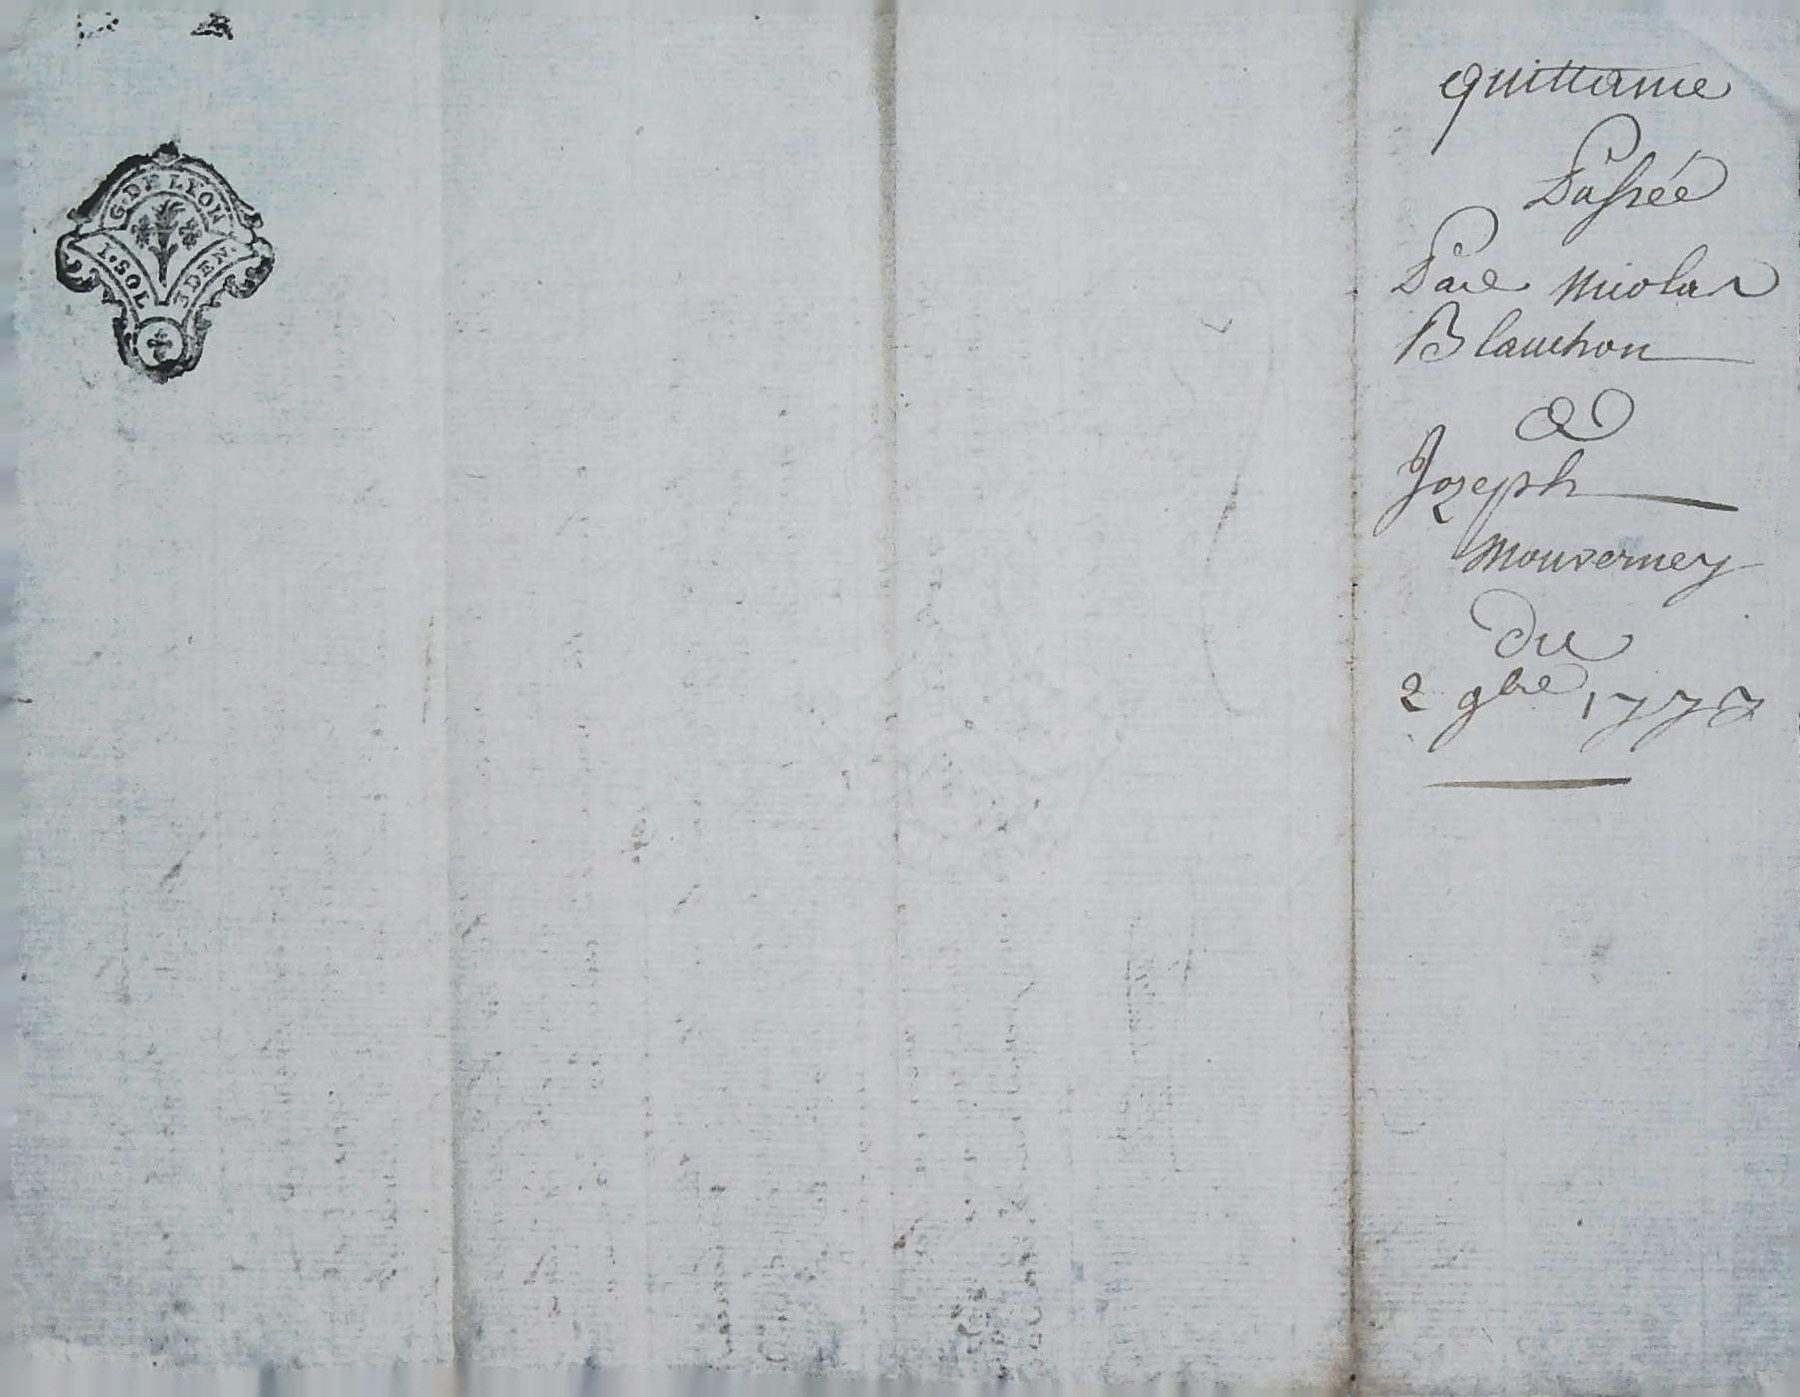 G. DE LYON
1. SOL 3 DEN.
quittance
Passée
Par Nicolas
Blanchon
a
Jozeph
Mouverney
du
2 9bre 1777